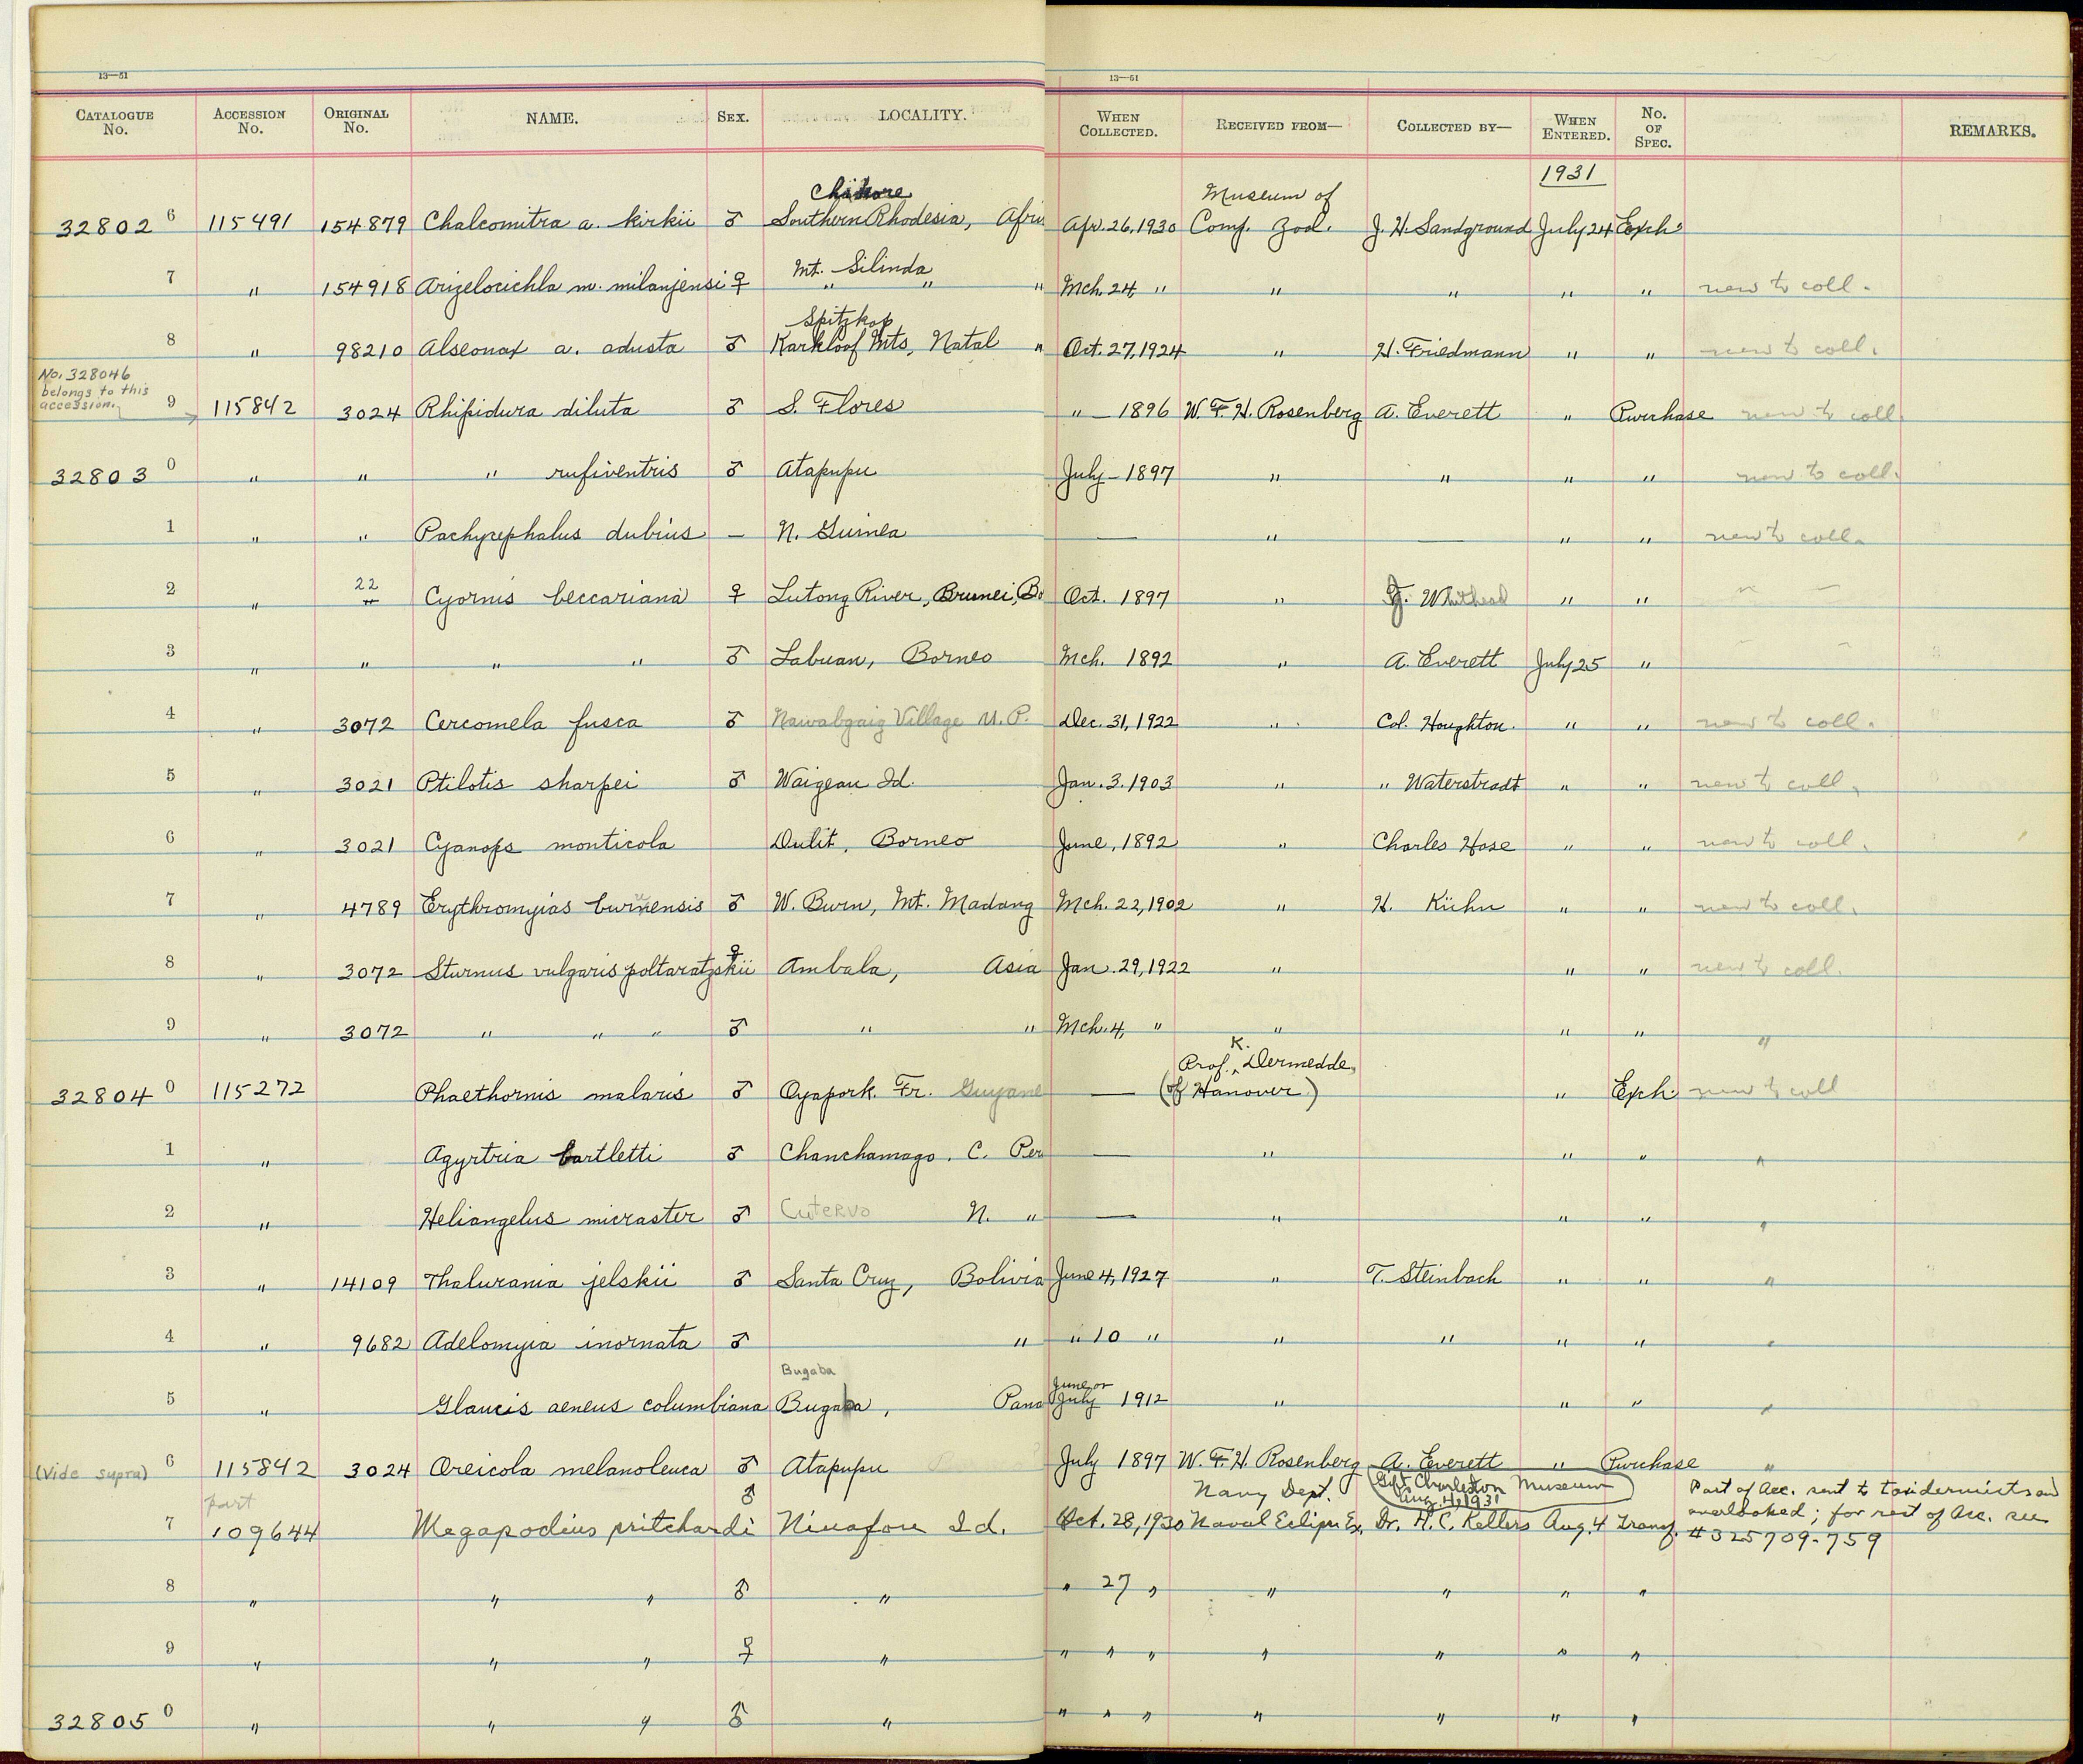 13—51 13—51
CATALOGUE No. ACCESSION No. ORIGINAL No. NAME. SEX. LOCALITY. WHEN COLLECTED. RECEIVED FROM— COLLECTED BY— WHEN ENTERED. No. OF SPEC. REMARKS.
1931
Museum of
32802 6 115491 154879 Chalcomitra a. kirkii ♂ Southern Rhodesia, Afri Apr. 26, 1930 Comp. Zool. J. H. Sandground July 24 Exch.
Mt. Silinda
7 " 154918 Arizelocichla m. milanjensi ♀ " " " Mch. 24, " " " " " new to coll.
Spitzkop
8 " 98210 Alseonax a. adusta ♂ Karkloof Mts, Natal " Oct. 27, 1924 " H. Friedmann " " new to coll.
No. 328046
belongs to this
accession.
9 115842 3024 Rhipidura diluta ♂ S. Flores " — 1896 W. F. H. Rosenberg A. Everett " Purchase new to coll.
32803 0 " " " rufiventris ♂ Atapupu July – 1897 " " " " new to coll.
1 " " Pachycephalus dubius — N. Guinea — " — " " new to coll.
22
2 " " Cyornis beccariana ♀ Lutong River, Brunei, Bo Oct. 1897 " J. Whithead " " " —
3 " " " " ♂ Labuan, Borneo Mch. 1892 " A. Everett July 25 "
4 " 3072 Cercomela fusca ♂ Nawabgaig Village U. P. Dec. 31, 1922 " Col. Houghton. " " new to coll.
5 " 3021 Ptilotis sharpei ♂ Waigeau Id. Jan. 3. 1903 " " Waterstradt " " new to coll.
6 " 3021 Cyanops monticola Dulit, Borneo June, 1892 " Charles Hose " " new to coll.
7 " 4789 Erythromyias buruensis ♂ W. Buru, Mt. Madang Mch. 22, 1902 " H. Kühn " " new to coll.
8 " 3072 Sturnus vulgaris poltaratzskii ♀ Ambala, Asia Jan. 29, 1922 " " " new to coll.
9 " 3072 " " " ♂ " " Mch. 4, " " " " "
Prof. K. Dermedde,
32804 0 115272 Phaethornis malaris ♂ Oyapork. Fr. Guyane — (of Hanover) " Exch. new to coll
1 " Agyrtria bartletti ♂ Chanchamago. C. Per — " " " "
2 " Heliangelus micraster ♂ Cutervo N. " — " " " "
3 " 14109 Thalurania jelskii ♂ Santa Cruz, Bolivia June 4, 1927 " T. Steinbach " " "
4 " 9682 Adelomyia inornata ♂ " " 10 " " " " " "
Bugaba
June or
5 " Glaucis aeneus columbiana Bugaba, Pana July 1912 " " " "
(Vide supra) 6 115842 3024 Oreicola melanoleuca ♂ Atapupu July 1897 W. F. H. Rosenberg A. Everett " Purchase "
Gift Charleston Museum
Aug. 4, 1931
part
Navy Dept.
Part of Acc. sent to taxidermists and
overlooked; for rest of Acc. see
7 109644 Megapodius pritchardi ♂ Niuafou Id. Oct. 28, 1930 Naval Eclipse Ex. Dr. H. C. Kellers Aug. 4 Transf. # 325709-759
8 " " " ♂ " " 27 " " " " "
9 " " " ♀ " " " " " " " "
32805 0 " " " ♂ " " " " " " " "